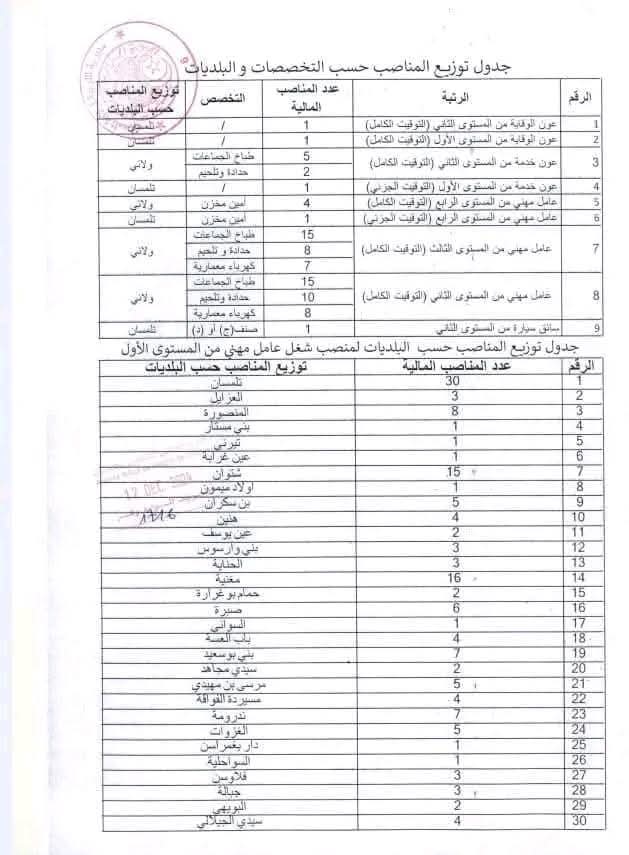 جدول توزيع المناصب حسب التخصصات و البلديات
الرقم | الرتبة | عدد المناصب المالية | التخصص | توزيع المناصب حسب البلديات
1 | عون الوقاية من المستوى الثاني (التوقيت الكامل) | 1 | / | تلمسان
2 | عون الوقاية من المستوى الأول (التوقيت الكامل) | 1 | / | تلمسان
3 | عون خدمة من المستوى الثاني (التوقيت الكامل) | 5 | طباخ الجماعات | ولائي
2 | حدادة وتلحيم
4 | عون خدمة من المستوى الأول (التوقيت الجزئي) | 1 | / | تلمسان
5 | عامل مهني من المستوى الرابع (التوقيت الكامل) | 4 | أمين مخزن | ولائي
6 | عامل مهني من المستوى الرابع (التوقيت الجزئي) | 1 | أمين مخزن | تلمسان
7 | عامل مهني من المستوى الثالث (التوقيت الكامل) | 15 | طباخ الجماعات | ولائي
8 | حدادة و تلحيم
7 | كهرباء معمارية
8 | عامل مهني من المستوى الثاني (التوقيت الكامل) | 15 | طباخ الجماعات | ولائي
10 | حدادة وتلحيم
8 | كهرباء معمارية
9 | سائق سيارة من المستوى الثاني | 1 | صنف(ج) أو (د) | تلمسان
جدول توزيع المناصب حسب البلديات لمنصب شغل عامل مهني من المستوى الأول
الرقم | عدد المناصب المالية | توزيع المناصب حسب البلديات
1 | 30 | تلمسان
2 | 3 | العزايل
3 | 8 | المنصورة
4 | 1 | بني مستار
5 | 1 | تيرني
6 | 1 | عين غرابة
7 | 15 | شتوان
8 | 1 | اولاد ميمون
9 | 5 | بن سكران
10 | 4 | هنين
11 | 2 | عين يوسف
12 | 3 | بني وارسوس
13 | 3 | الحناية
14 | 16 | مغنية
15 | 2 | حمام بوغرارة
16 | 6 | صبرة
17 | 1 | السواني
18 | 4 | باب العسة
19 | 7 | بني بوسعيد
20 | 2 | سيدي مجاهد
21 | 5 | مرسى بن مهيدي
22 | 4 | مسيردة الفواقة
23 | 7 | ندرومة
24 | 5 | الغزوات
25 | 1 | دار يغمراسن
26 | 1 | السواحلية
27 | 3 | فلاوسن
28 | 3 | جبالة
29 | 2 | البويهي
30 | 4 | سيدي الجيلالي
12 DEC 2024
1716